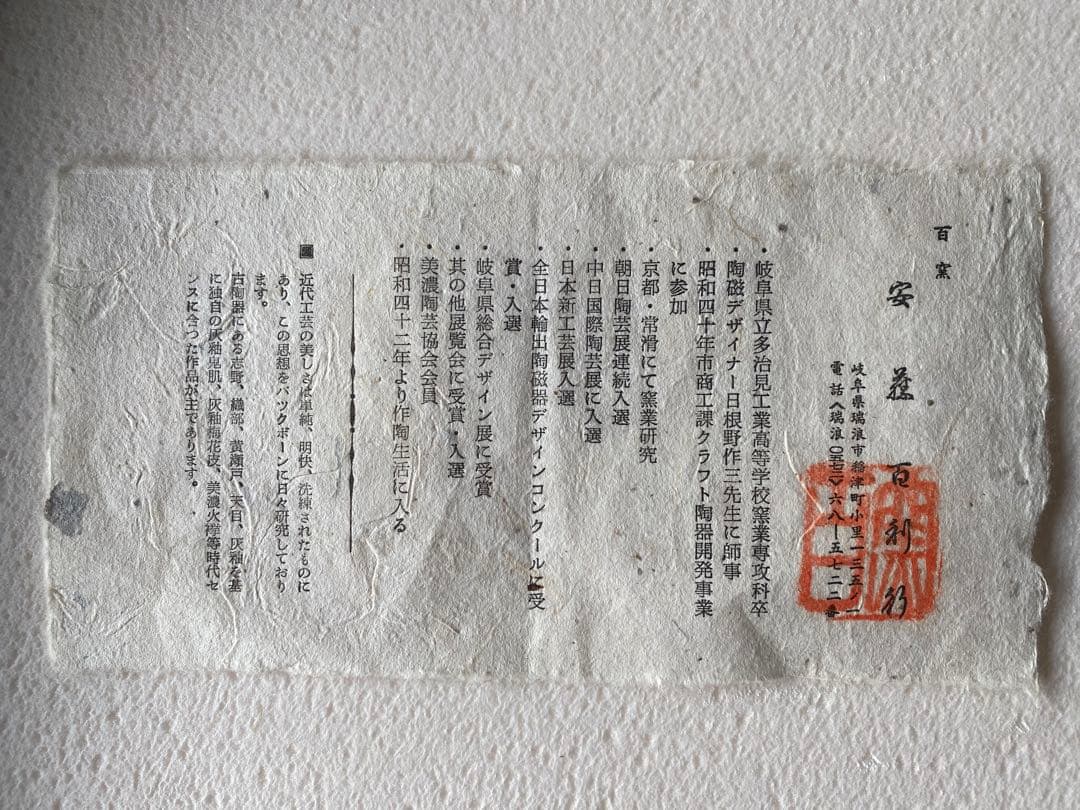 百窯
安藤百利行
岐阜県瑞浪市稲津町小里一三五ノ一
電話〈瑞浪〇五七二〉六八ー五七二二番
・岐阜県立多治見工業高等学校窯業専攻科卒
・陶磁デザイナー日根野作三先生に師事
・昭和四十年市商工課クラフト陶器開発事業
に参加
・京都・常滑にて窯業研究
・朝日陶芸展連続入選
・中日国際陶芸展に入選
・日本新工芸展入選
・全日本輸出陶磁器デザインコンクールに受
賞・入選
・岐阜県総合デザイン展に受賞
・其の他展覧会に受賞・入選
・美濃陶芸協会会員
・昭和四十二年より作陶生活に入る
近代工芸の美しさは単純、明快、洗練されたものに
あり、この思想をバックボーンに日々研究しており
ます。
古陶器にある志野、織部、黄瀬戸、天目、灰釉を基
に独自の灰釉鬼肌、灰釉梅花皮、美濃火襷等時代セ
ンスに合つた作品が主であります。